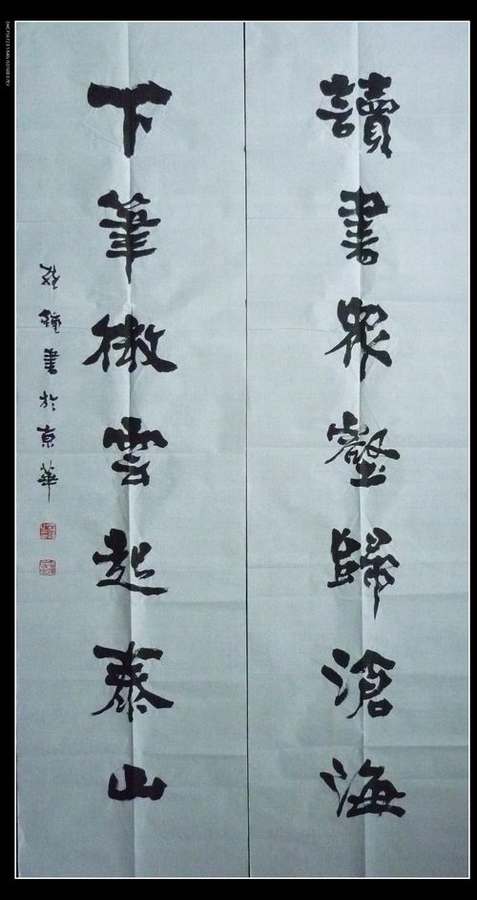 讀書眾壑歸滄海
下筆微雲起泰山
鍾書於京華